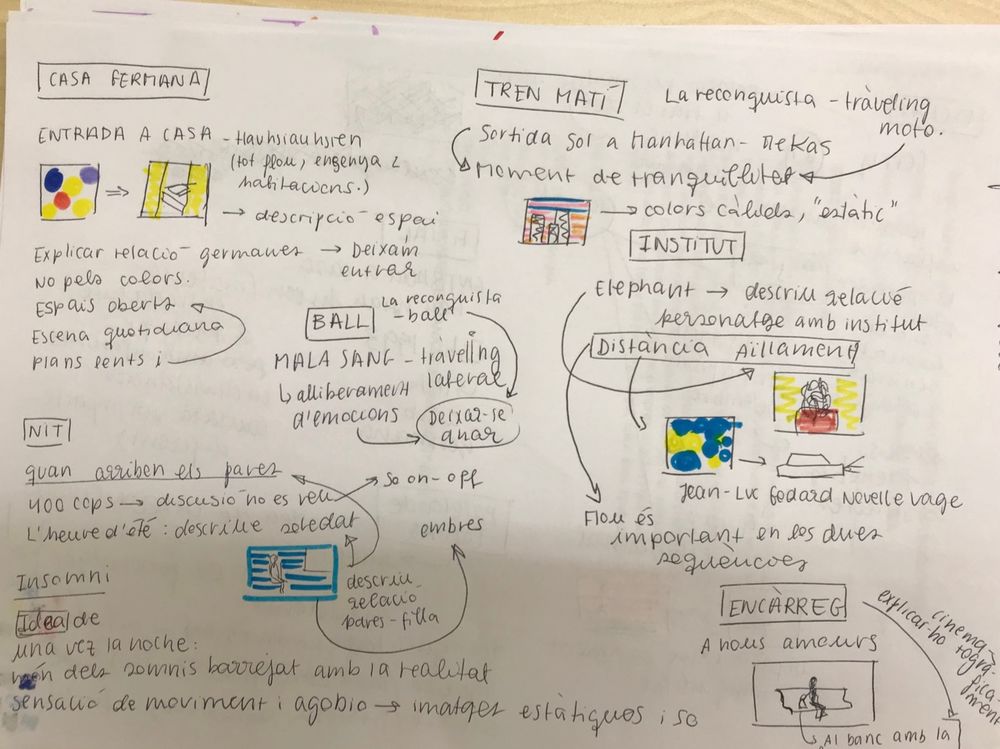 CASA GERMANA
ENTRADA A CASA - Haushiaushiren
(tot flou, ensenya 2
habitacions.)
→ descripció espai
Explicar relació germanes → Deixam
entrar
NO pels colors.
Espais oberts
Escena quotidiana
Plans lents i
BALL
La reconquista
- ball
MALA SANG - travelling
lateral
↳ alliberament
d'emocions
Deixar-se
anar
NIT
quan arriben els pares
400 cops → discusió no es veu
→ So on-off
L'heure d'été : descriure soledat
ombres
descriu
relació
pares-filla
Insomni
Idea de
una vez la noche:
món dels somnis barrejat amb la realitat
sensació de moviment i agobio → imatges estàtiques i so
TREN MATÍ
La reconquista - tràveling
moto.
Sortida Sol a Manhattan - Mekas
Moment de tranquil·litat
→ colors càlids, "estàtic"
INSTITUT
Elephant → descriu relació
personatge amb institut
Distància Aïllament
Jean-Luc Godard Novelle vage
Flou és
important en les dues
seqüències
ENCÀRREG
A nous amours
explicar-ho
cinema-
togrà-
fica-
ment
↳ Al banc amb la